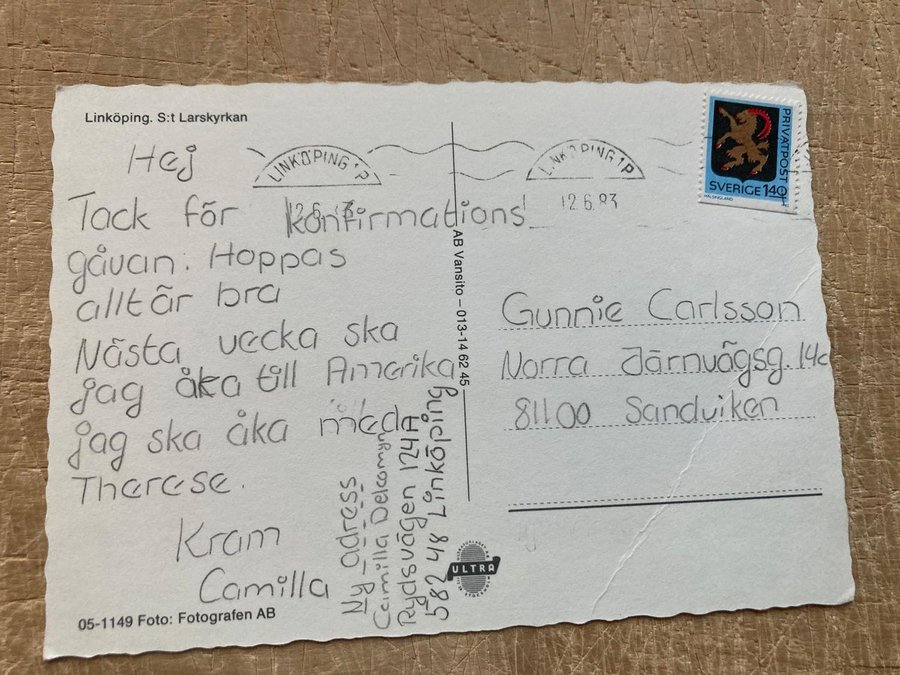 Linköping. S:t Larskyrkan
Hej
Tack för konfirmations
gåvan. Hoppas
allt är bra
Nästa vecka ska
jag åka till Amerika
jag ska åka med
Therese.
Kram
Camilla
05-1149 Foto: Fotografen AB
Ny adress
Camilla
Rydsvägen 124A
582 48 Linköping
AB Vansito – 013-14 62 45
ULTRA
LINKÖPING 1P
12.6.83
LINKÖPING 1P
12.6.83
PRIVATPOST
SVERIGE 140
HÄLSINGLAND
Gunnie Carlsson
Norra Järnvägsg. 14c
81100 Sandviken